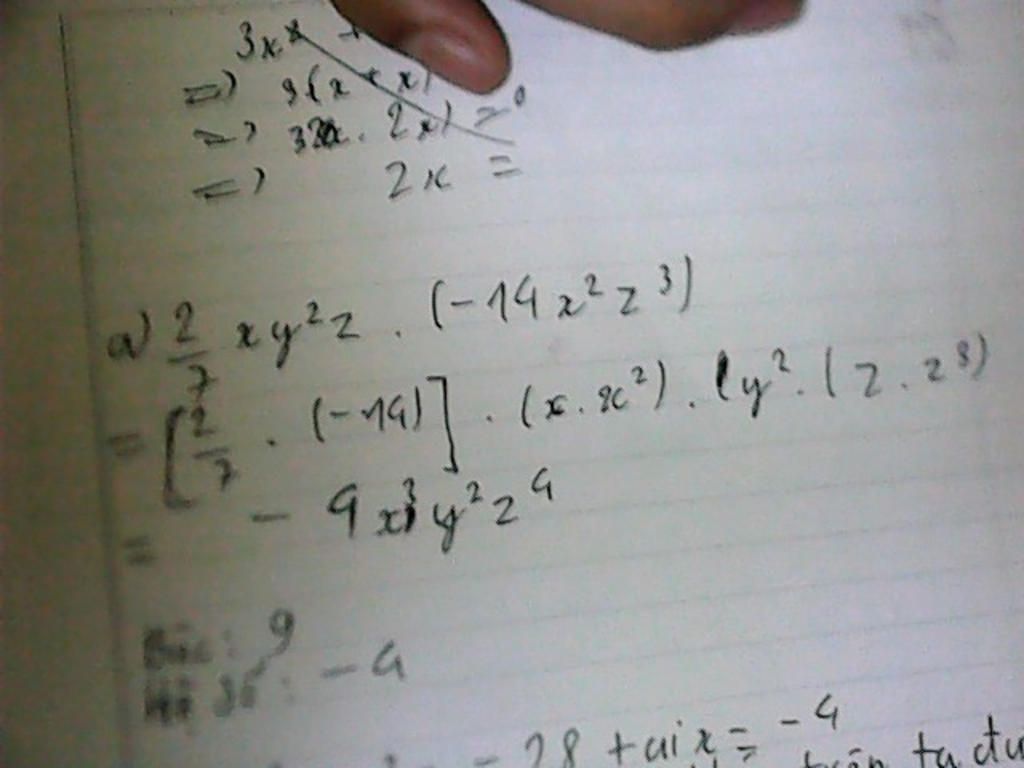 3x² +
=) 3(x + x)
=) 3x . 2x) = 0
=) 2x =
a) 2/7 xy²z . (-14x²z³)
= [2/7 . (-14)] . (x.x²) . (y² . (z . z³)
= - 4x³y²z⁴
Bậc: 9
Hệ số: -4
- 28 + tại x = -4
ta đư